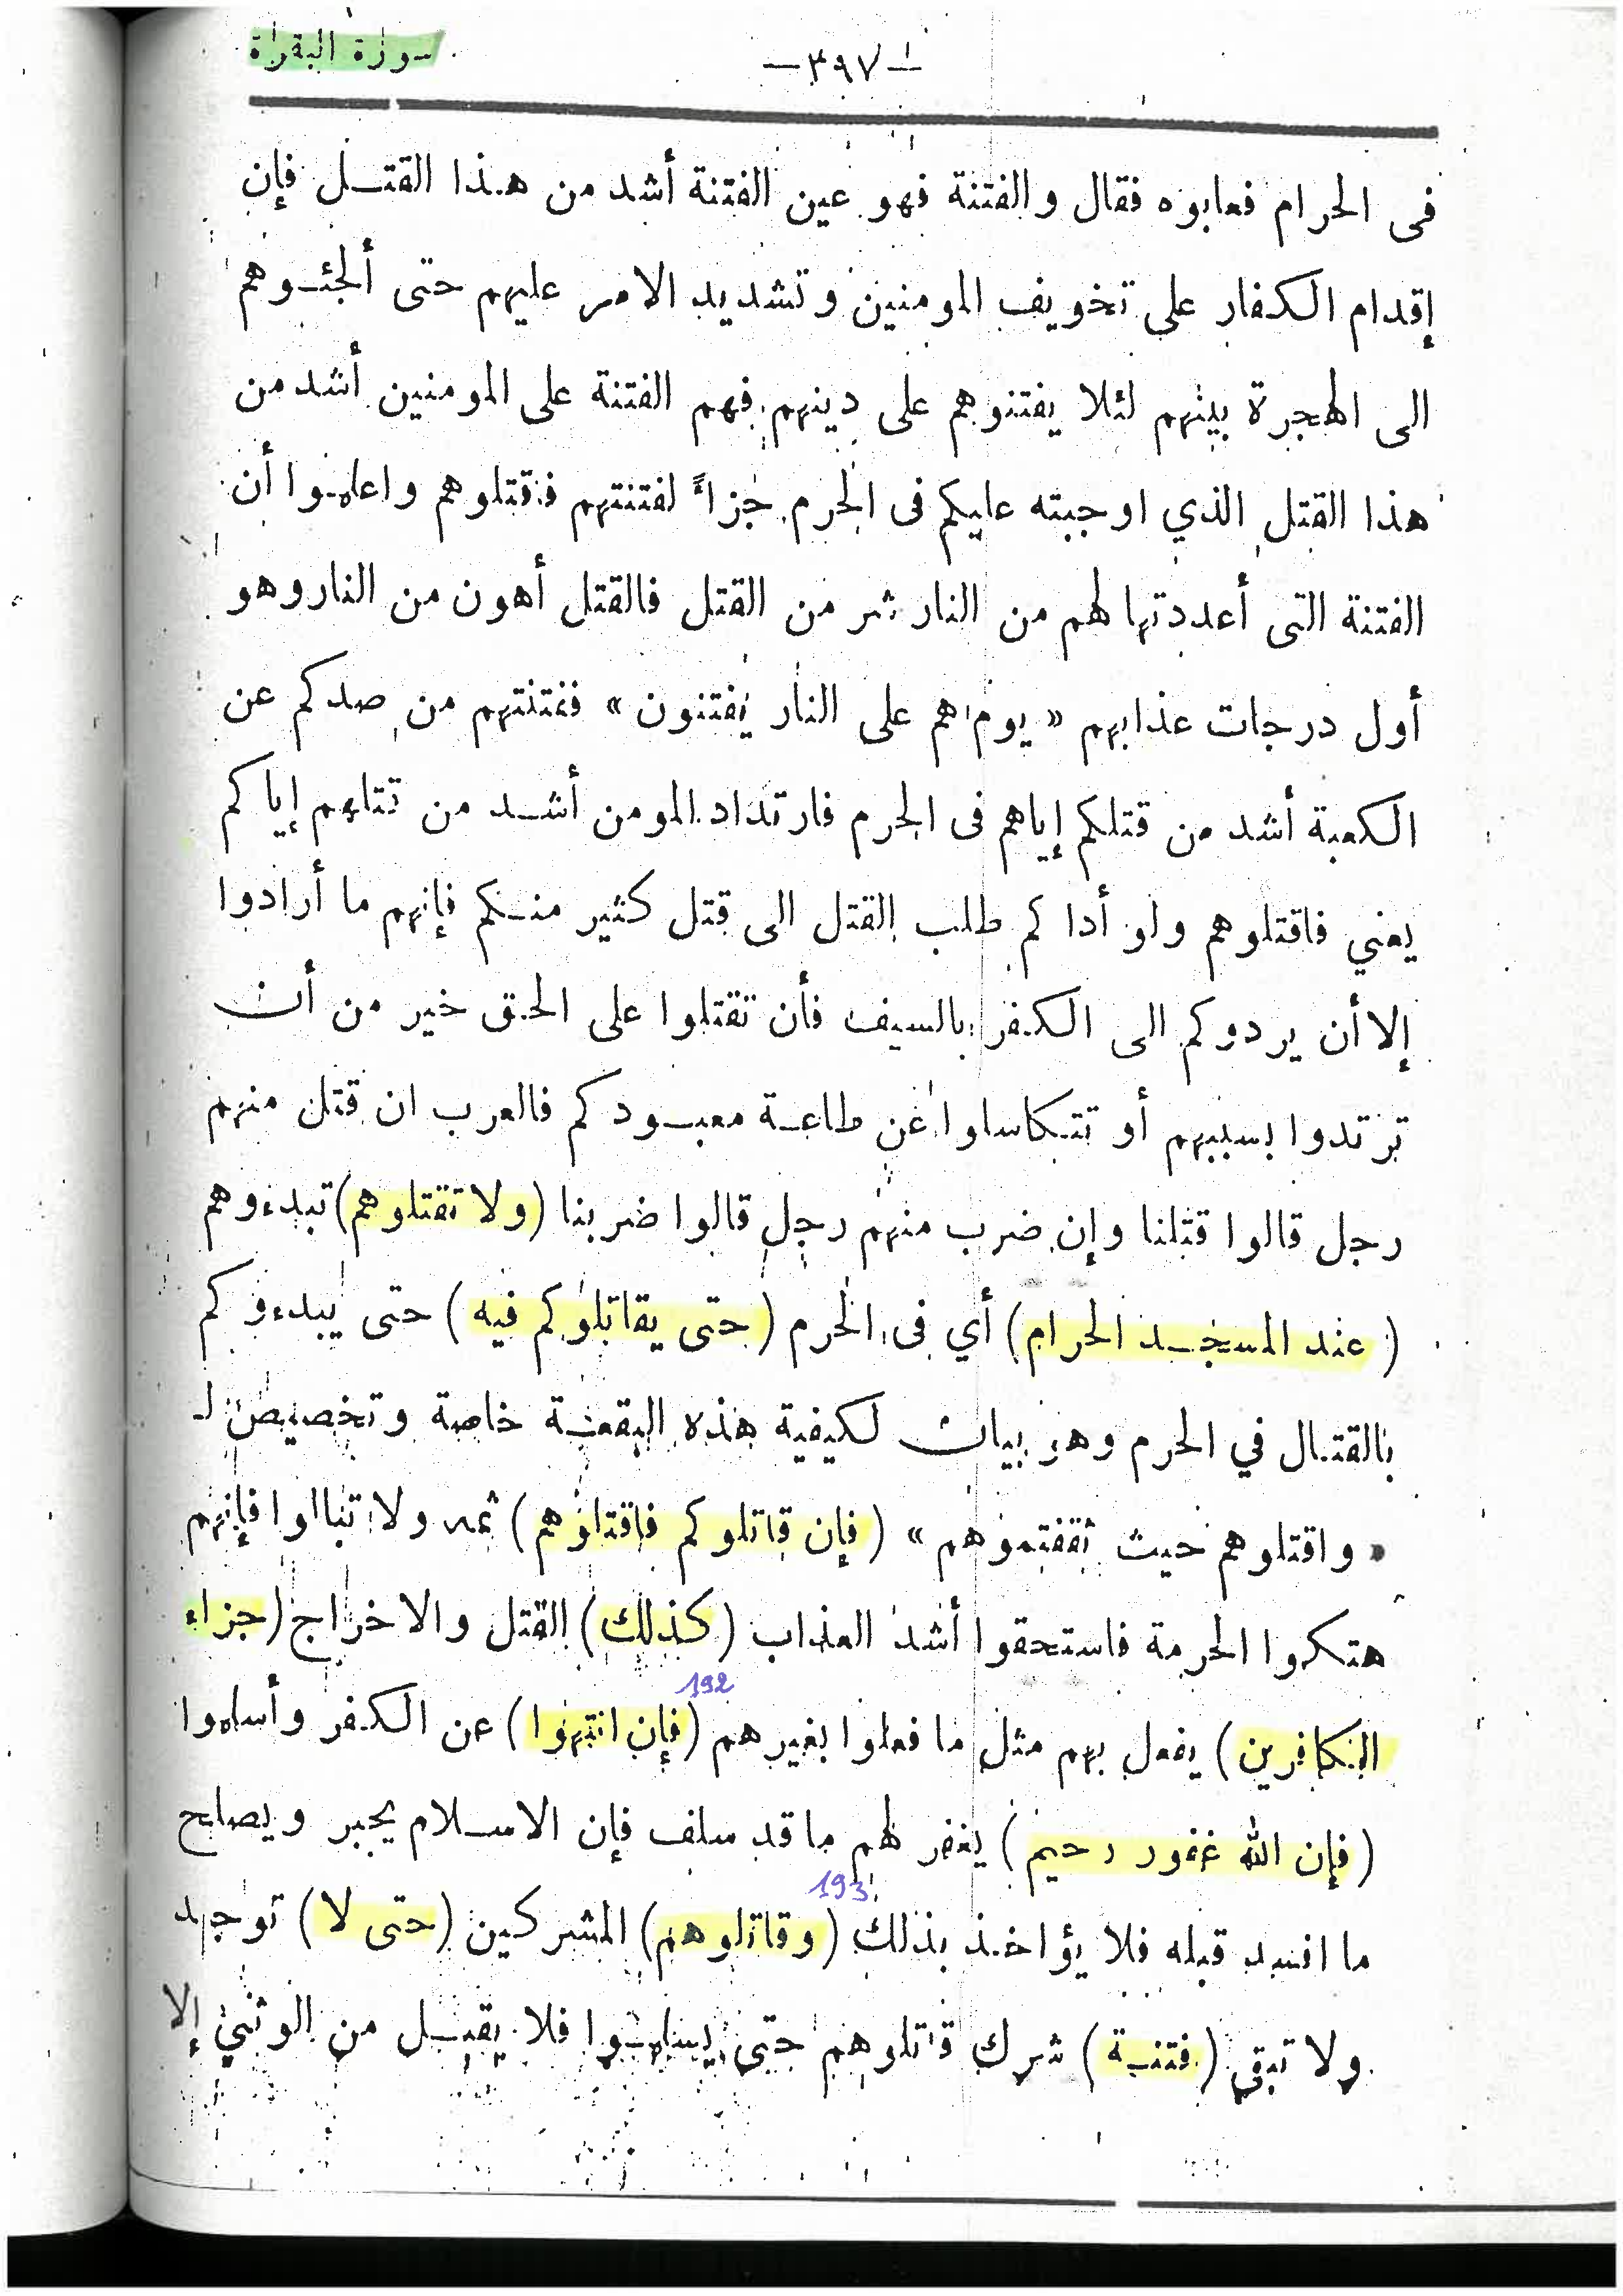 سورة البقرة
— ٣٩٧ —
فى الحرام فعابوه فقال والفتنة فهو عين الفتنة أشد من هذا القتل فإن
إقدام الكفار على تخويف المومنين وتشديد الامر عليهم حتى ألجئوهم
الى الهجرة بيثهم لئلا يفتنوهم على دينهم فهم الفتنة على المومنين أشد من
هذا القتل الذي اوجبته عليكم فى الحرم جزاءً لفتنتهم فاقتلوهم واعلموا أن
الفتنة التى أعددتها لهم من النار شر من القتل فالقتل أهون من النار وهو
أول درجات عذابهم « يوم هم على النار يفتنون » ففتنتهم من صدكم عن
الكعبة أشد من قتلكم إياهم فى الحرم فارتداد المومن أشد من قتلهم إياكم
يعني فاقتلوهم ولو أداكم طلب القتل الى قتل كثير منكم فإنهم ما أرادوا
إلا أن يردوكم الى الكفر بالسيف فأن تقتلوا على الحق خير من أن
ترتدوا بسببهم أو تتكاسلوا عن طاعة معبودكم فالعرب ان قتل منهم
رجل قالوا قتلنا وإن ضرب منهم رجل قالوا ضربنا (ولا تقتلوهم) تبدءوهم
( عند المسجد الحرام ) أي فى الحرم ( حتى يقاتلوكم فيه ) حتى يبدءوكم
بالقتال في الحرم وهو بيان لكيفية هذه البقعة خاصة وتخصيص لـ
« واقتلوهم حيث ثقفتموهم » ( فإن قاتلوكم فاقتلوهم ) ثمه ولا تبالوا فإنهم
هتكوا الحرمة فاستحقوا أشد العذاب ( كذلك ) القتل والاخراج ( جزاء
192
الكافرين ) يفعل بهم مثل ما فعلوا بغيرهم ( فإن انتهوا ) عن الكفر وأسلموا
( فإن الله غفور رحيم ) يغفر لهم ما قد سلف فإن الاسلام يجبر ويصلح
193
ما افسد قبله فلا يؤاخذ بذلك ( وقاتلوهم ) المشركين ( حتى لا ) توجد
ولا تبقى ( فتنة ) شرك قاتلوهم حتى يسلموا فلا يقبل من الوثني إلا